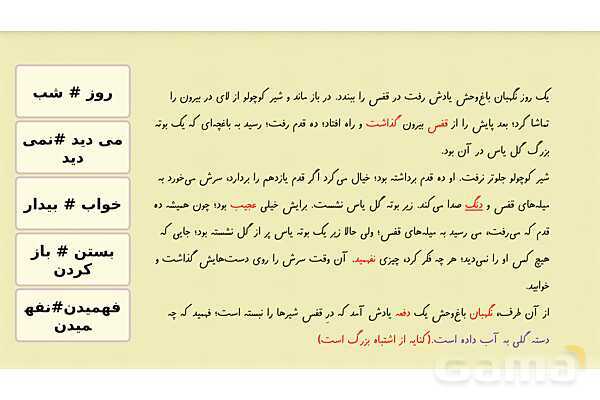 یک روز نگهبان باغ‌وحش یادش رفت در قفس را ببندد. در باز ماند و شیر کوچولو از لای در بیرون را
تماشا کرد؛ بعد پایش را از قفس بیرون گذاشت و راه افتاد؛ ده قدم رفت؛ رسید به باغچه‌ای که یک بوته
بزرگ گل یاس در آن بود.
شیر کوچولو جلوتر نرفت. او ده قدم برداشته بود؛ خیال می‌کرد اگر قدم یازدهم را بردارد، سرش می‌خورد به
میله‌های قفس و دنگ صدا می‌کند. زیر بوته گل یاس نشست. برایش خیلی عجیب بود؛ چون همیشه ده
قدم که می‌رفت، می رسید به میله‌های قفس؛ ولی حالا زیر یک بوته یاس پر از گل نشسته بود؛ جایی که
هیچ کس او را نمی‌دید؛ هر چه فکر کرد، چیزی نفهمید. آن وقت سرش را روی دست‌هایش گذاشت و
خوابید.
از آن طرف، نگهبان باغ‌وحش یک دفعه یادش آمد که درِ قفس شیرها را نبسته است؛ فهمید که چه
دسته گلی به آب داده است.(کنایه از اشتباه بزرگ است)
روز # شب
می دید #نمی
دید
خواب # بیدار
بستن # باز
کردن
فهمیدن#نفه
میدن
Gama